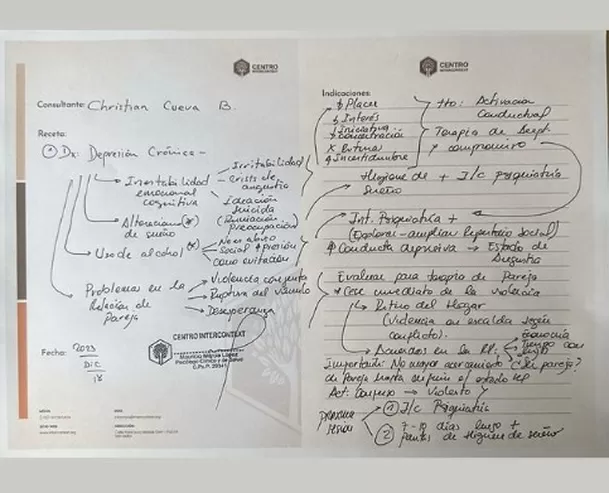 CENTRO
INTERCONTEXT
Consultante: Christian Cueva B.
Receta:
① Dx: Depresión Crónica -
Irritabilidad
Crisis de angustia
Inestabilidad emocional cognitiva
Ideación suicida
(Rumiación preocupación)
Alteraciones de sueño (*)
Uso de alcohol (*)
No en abuso
Social + presión
como evitación
Problemas en la Relación de Pareja
Violencia conjunta
Ruptura del vínculo
Desesperanza
CENTRO INTERCONTEXT
Psicólogo Clínico y de Salud
Fecha: 2023
DIC
18
CENTRO
INTERCONTEXT
Indicaciones:
↓ Placer
↓ Interés
↓ Iniciativa
↓ Concentración
x Futuro
↑ Incertidumbre
tto: Activación
Conductual
Terapia de Acept.
y compromiso
Higiene de + I/c psiquiatría
sueño
Int. Psiquiatría +
(Explorar - ampliar Repertorio Social)
Conducta depresiva → Estado de
Angustia
Evaluar para terapia de Pareja
* Cese inmediato de la violencia
Retiro del Hogar
(Violencia en escalda según
conflicto).
Acuerdos en la RP:
economía
Tiempo con
Importante: No mayor acercamiento
de Pareja hasta
Act: → Violento
próxima
sesión
① I/c Psiquiatría
② 7-10 días luego +
pautas de Higiene de sueño